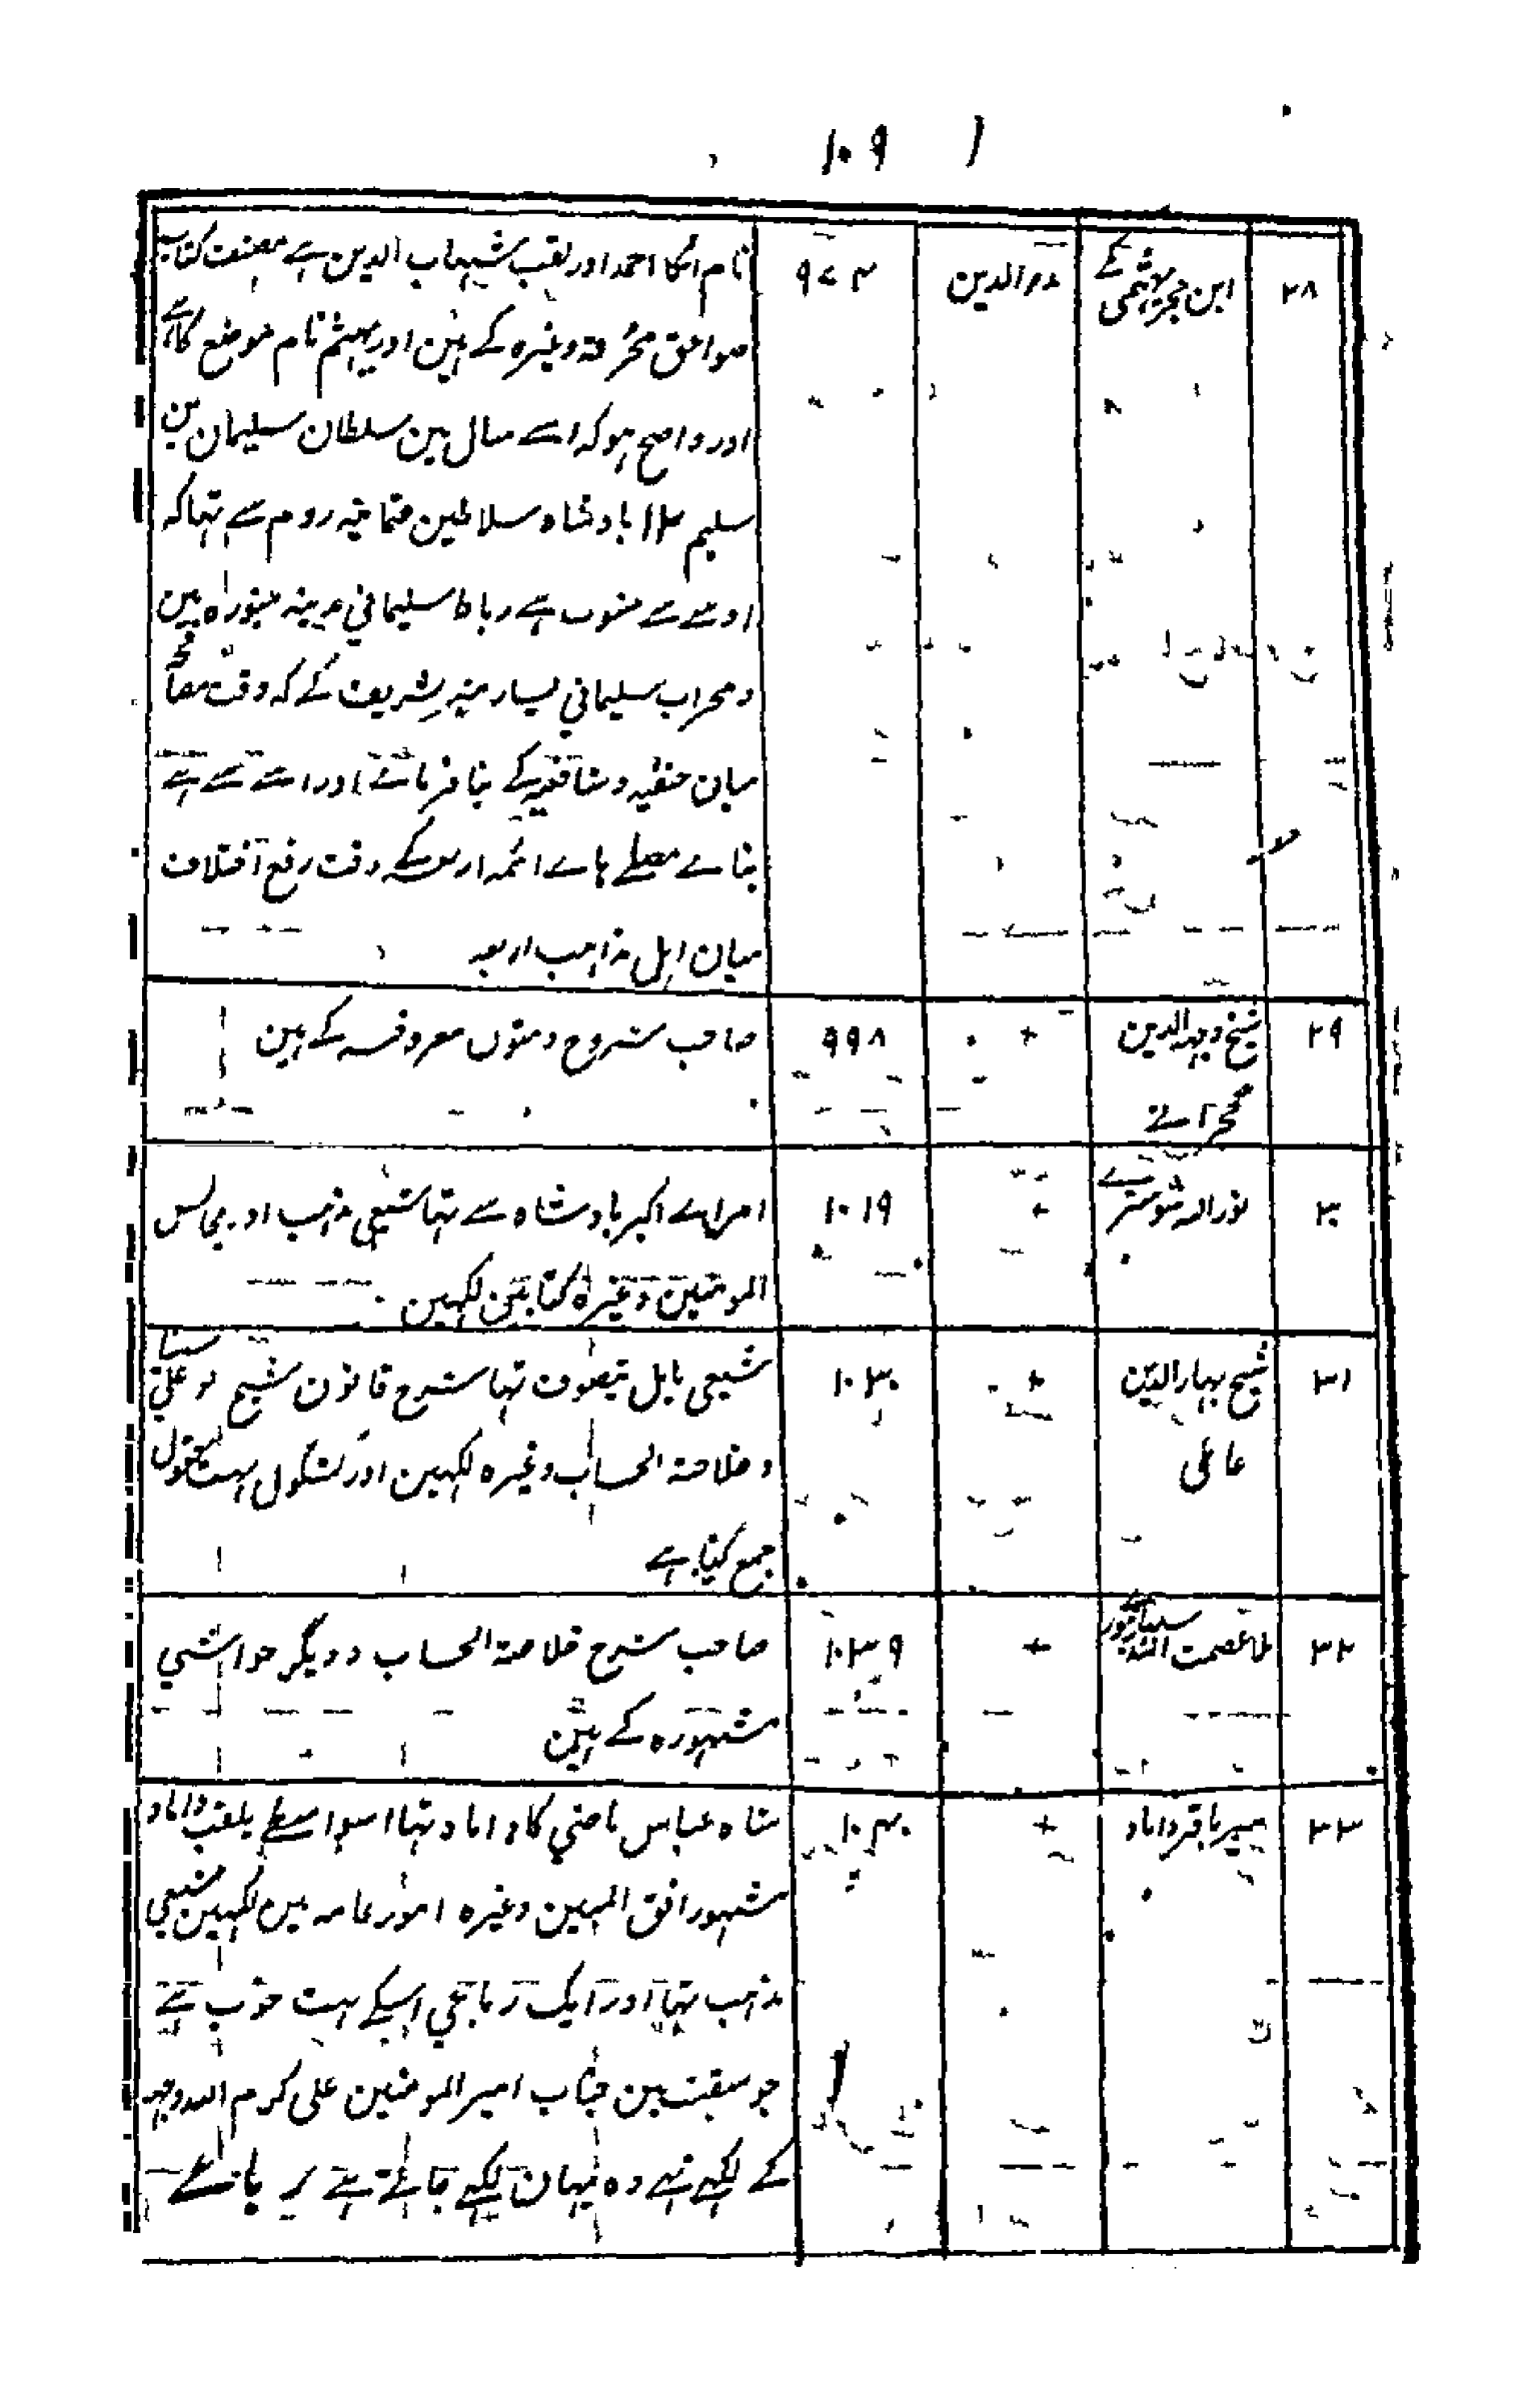 ۱۰۹
۲۸ ابن حجر ہیثمی کے بدرالدین ۹۷۴ نام اسکا احمد اور لقب شہاب الدین ہے مصنف کتاب
صواعق محرقہ وغیرہ کے ہین اور ہیثم نام موضع کا ہے
اور واضح ہو کہ اسے سال مین سلطان سلیمان بن
سلیم ۱۲ بادشاہ سلاطین عثمانیہ روم سے تہا کہ
اوسے سے منسوب ہے رباط سلیمانی مدینہ منورہ مین
و محراب سلیمانی یسار منبر شریف کے کہ وقت
میان حنفیہ و شافعیہ کے بنا فرمائے اور اسے سے ہے
بناے مصلے ہاے ائمہ اربعہ کے وقت رفع اختلاف
میان اہل مذاہب اربعہ
۲۹ شیخ وجہ الدین + ۹۹۸ صاحب شروح و متون معروفہ کے ہین
گجراتے
۳۰ نور اللہ شوسترے + ۱۰۱۹ امراے اکبر بادشاہ سے تہا شیعی مذہب اور مجالس
المومنین وغیرہ کتابین لکہین
۳۱ شیخ بہار الدین + ۱۰۳۰ شیعی مایل بتصوف تہا شرح قانون شیخ بو علی سینا
عاملی و خلاصۃ الحساب وغیرہ لکہین اور کشکول بہت
جمع کیا ہے
۳۲ ملا عصمت اللہ سہارنپورے + ۱۰۳۹ صاحب شرح خلاصۃ الحساب و دیگر حواشی
مشہورہ کے ہین
۳۳ میر باقر داماد + ۱۰۴۰ شاہ عباس ماضی کا داماد تہا اسواسطے بلقب داماد
مشہور افق المبین وغیرہ امور عامہ مین لکہین شیعی
مذہب تہا اور ایک رباعی اسکے بہت خوب ہے
جو منقبت مین جناب امیر المومنین علی کرم اللہ وجہہ
کے لکہے ہے وہ یہان لکہے جاتے ہے رباعے